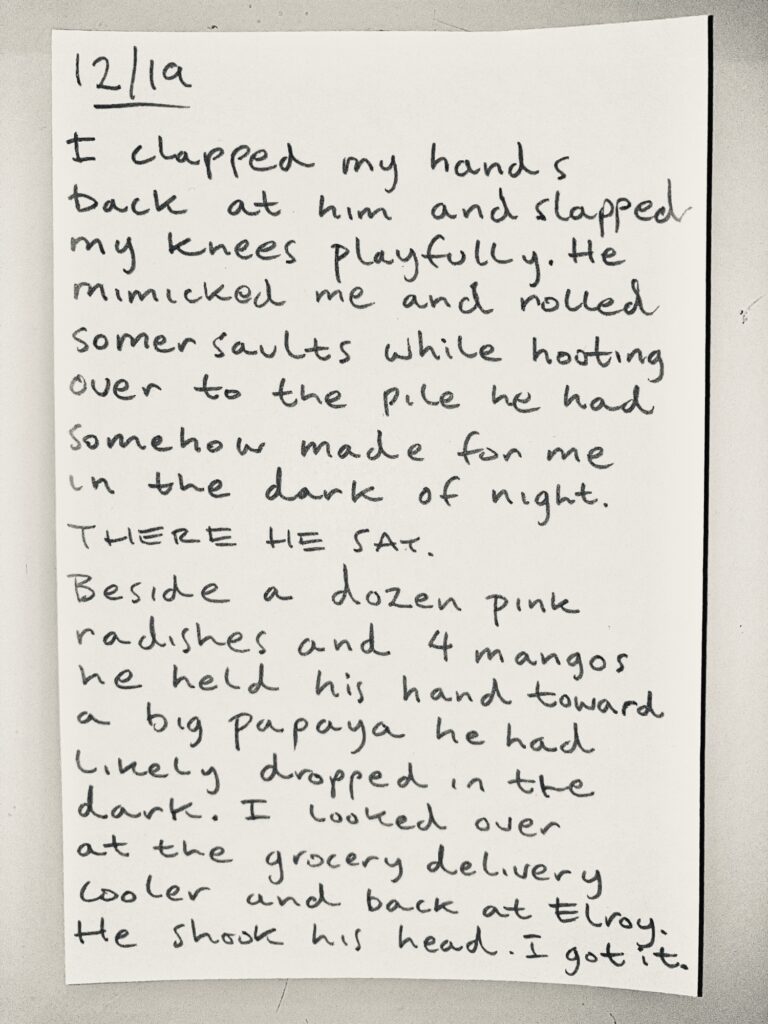 12/19
I clapped my hands
back at him and slapped
my knees playfully. He
mimicked me and rolled
somersaults while hooting
over to the pile he had
somehow made for me
in the dark of night.
THERE HE SAT.
Beside a dozen pink
radishes and 4 mangos
he held his hand toward
a big papaya he had
likely dropped in the
dark. I looked over
at the grocery delivery
cooler and back at Elroy.
He shook his head. I got it.